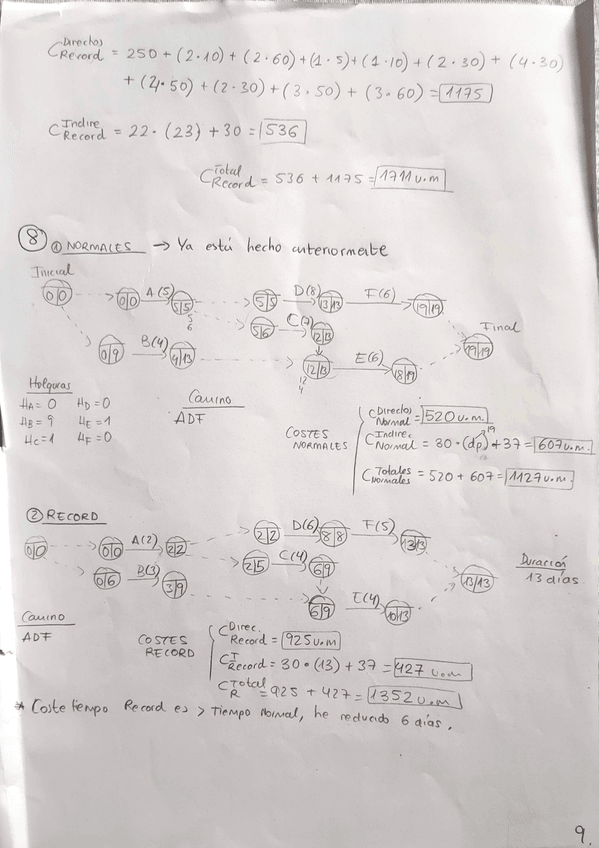 C Directos Record = 250 + (2·10) + (2·60) + (1·5) + (1·10) + (2·30) + (4·30)
+ (4·50) + (2·30) + (3·50) + (3·60) = 1175
C Indire Record = 22·(23) + 30 = 536
C Total Record = 536 + 1175 = 1711 u.m
8 ① NORMALES → Ya está hecho anteriormente
Inicial
0|0 0|0 A(5) 5|5 5|5 D(8) 13|13 F(6) 19|19
5 6
5|6 C(7) 12|13 Final
0|9 B(4) 4|13 12|13 E(6) 18|19 19|19
12 4
Holguras
HA = 0 HD = 0
HB = 9 HE = 1
HC = 1 HF = 0
Camino
ADF
COSTES NORMALES
C Directos Normal = 520 u.m.
C Indirec Normal = 30·(dp) + 37 = 607 u.m.
19
C Totales Normales = 520 + 607 = 1127 u.m.
② RECORD
0|0 0|0 A(2) 2|2 2|2 D(6) 8|8 F(5) 13|13
2|5 C(4) 6|9
0|6 B(3) 3|9 6|9 E(4) 10|13 13|13
Duración
13 días
Camino
ADF
COSTES RECORD
C Direc. Record = 925 u.m
C I Record = 30·(13) + 37 = 427 u.m
C Total R = 925 + 427 = 1352 u.m
* Coste tiempo Record es > tiempo Normal, he reducido 6 días.
9.